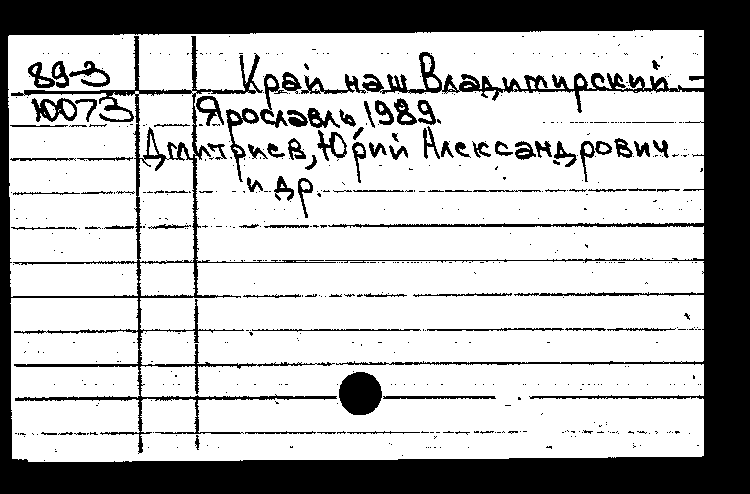 89-3
10073
Край наш Владимирский. -
Ярославль, 1989.
Дмитриев, Юрий Александрович
и др.